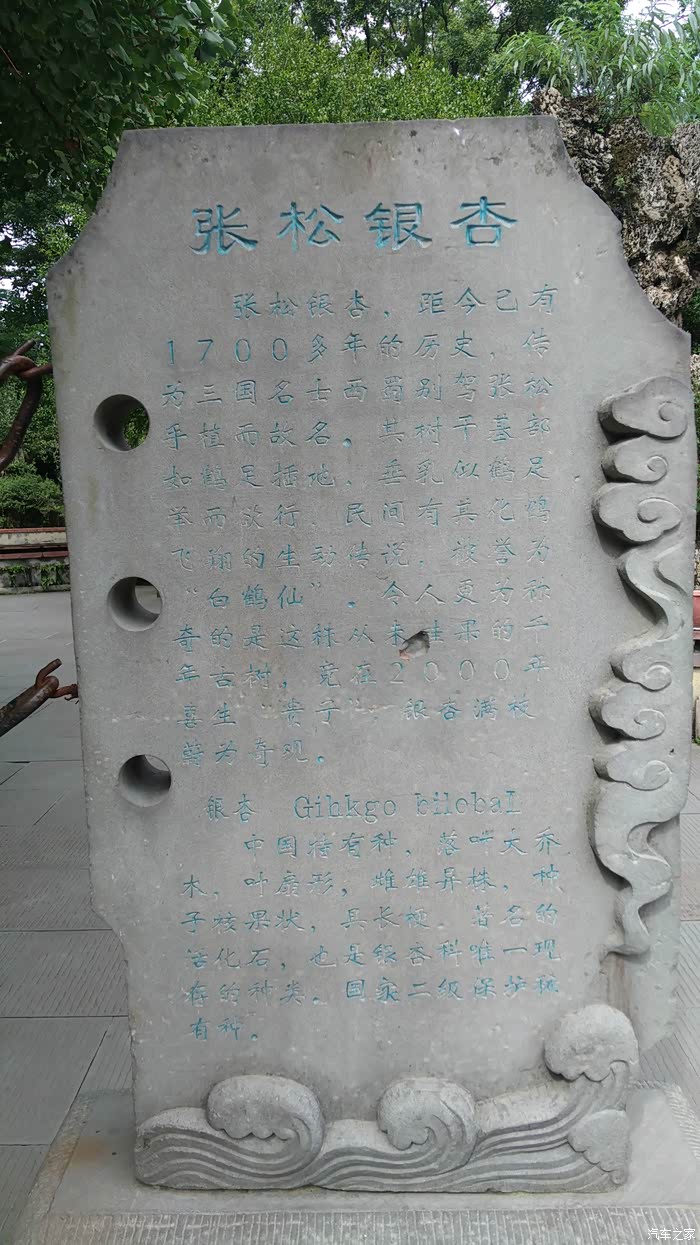 张松银杏
张松银杏，距今已有
1700多年的历史，传
为三国名士西蜀别驾张松
手植而故名。其树干基部
如鹤足插地，垂乳似鹤足
举而欲行，民间有其化鹤
飞翔的生动传说，被誉为
“白鹤仙”。令人更为称
奇的是这株从未结果的千
年古树，竟在2000年
喜生“贵子”，银杏满枝
誉为奇观。
银杏 Gihkgo bilobaL
中国特有种，落叶大乔
木，叶扇形，雌雄异株，种
子核果状，具长梗。著名的
活化石，也是银杏科唯一现
存的种类。国家二级保护稀
有种。
汽车之家